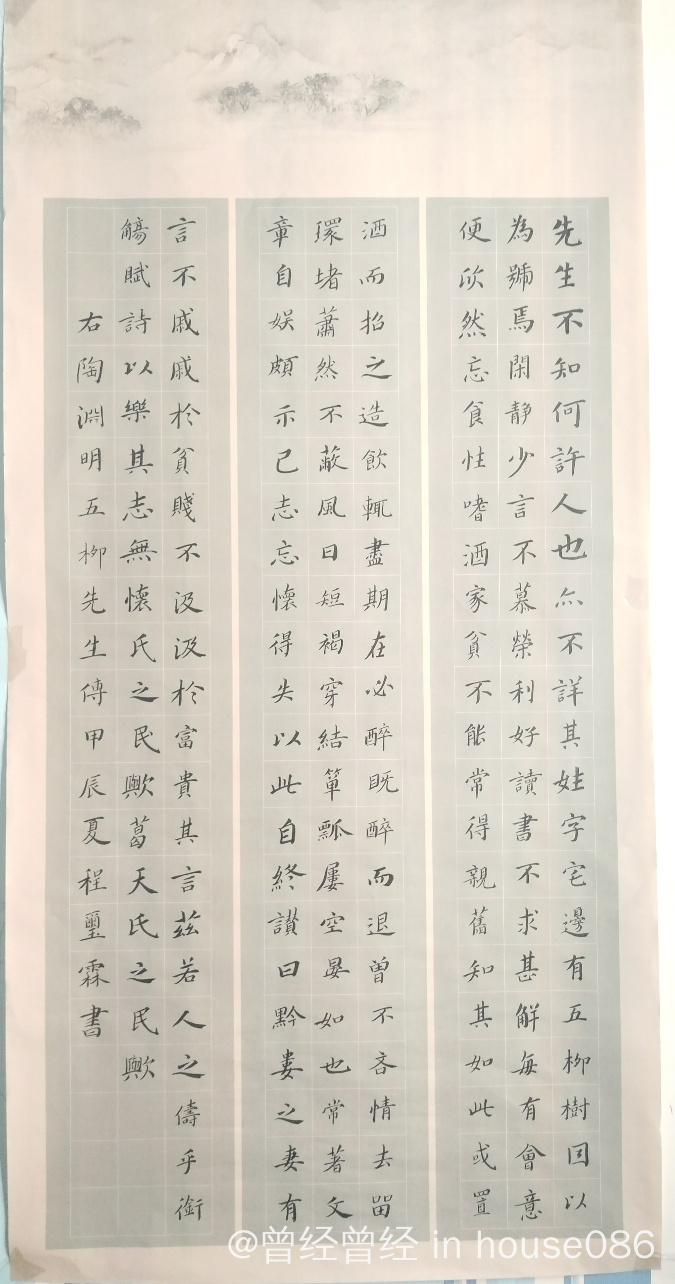 先生不知何許人也亦不詳其姓字宅邊有五柳樹因以
為號焉閑靜少言不慕榮利好讀書不求甚解每有會意
便欣然忘食性嗜酒家貧不能常得親舊知其如此或置
酒而招之造飲輒盡期在必醉既醉而退曾不吝情去留
環堵蕭然不蔽風日短褐穿結簞瓢屢空晏如也常著文
章自娛頗示己志忘懷得失以此自終讃曰黔婁之妻有
言不戚戚於貧賤不汲汲於富貴其言茲若人之儔乎銜
觴賦詩以樂其志無懷氏之民歟葛天氏之民歟
右陶淵明五柳先生傳甲辰夏程璽霖書
@曾经曾经 in house086